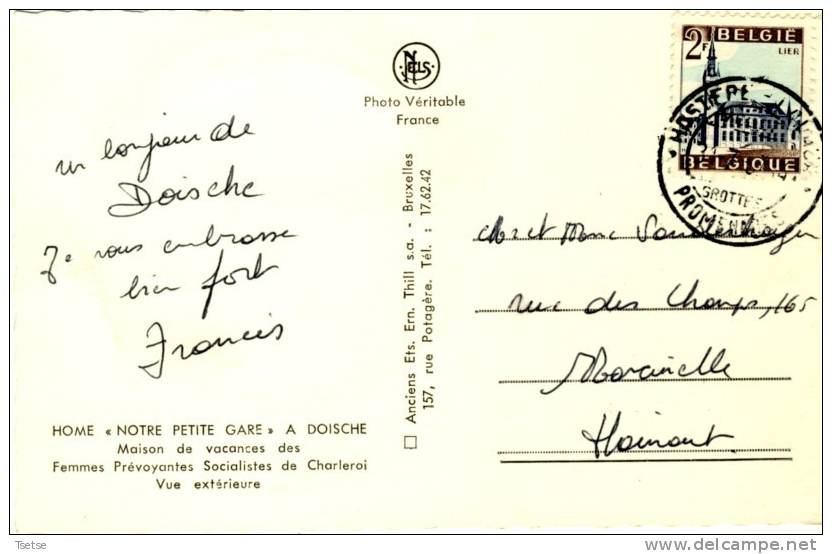 NELS
Photo Véritable
France
2F BELGIË
LIER
BELGIQUE
HASTIERE
GROTTES
PROMENADES
un bonjour de
Doische
Je vous embrasse
bien fort
Francis
HOME « NOTRE PETITE GARE » A DOISCHE
Maison de vacances des
Femmes Prévoyantes Socialistes de Charleroi
Vue extérieure
Anciens Ets. Ern. Thill s.a. - Bruxelles
157, rue Potagère. Tél. : 17.62.42
et
rue des Champs, 165
Marcinelle
Hainaut.
Tsetse
delcampe.net